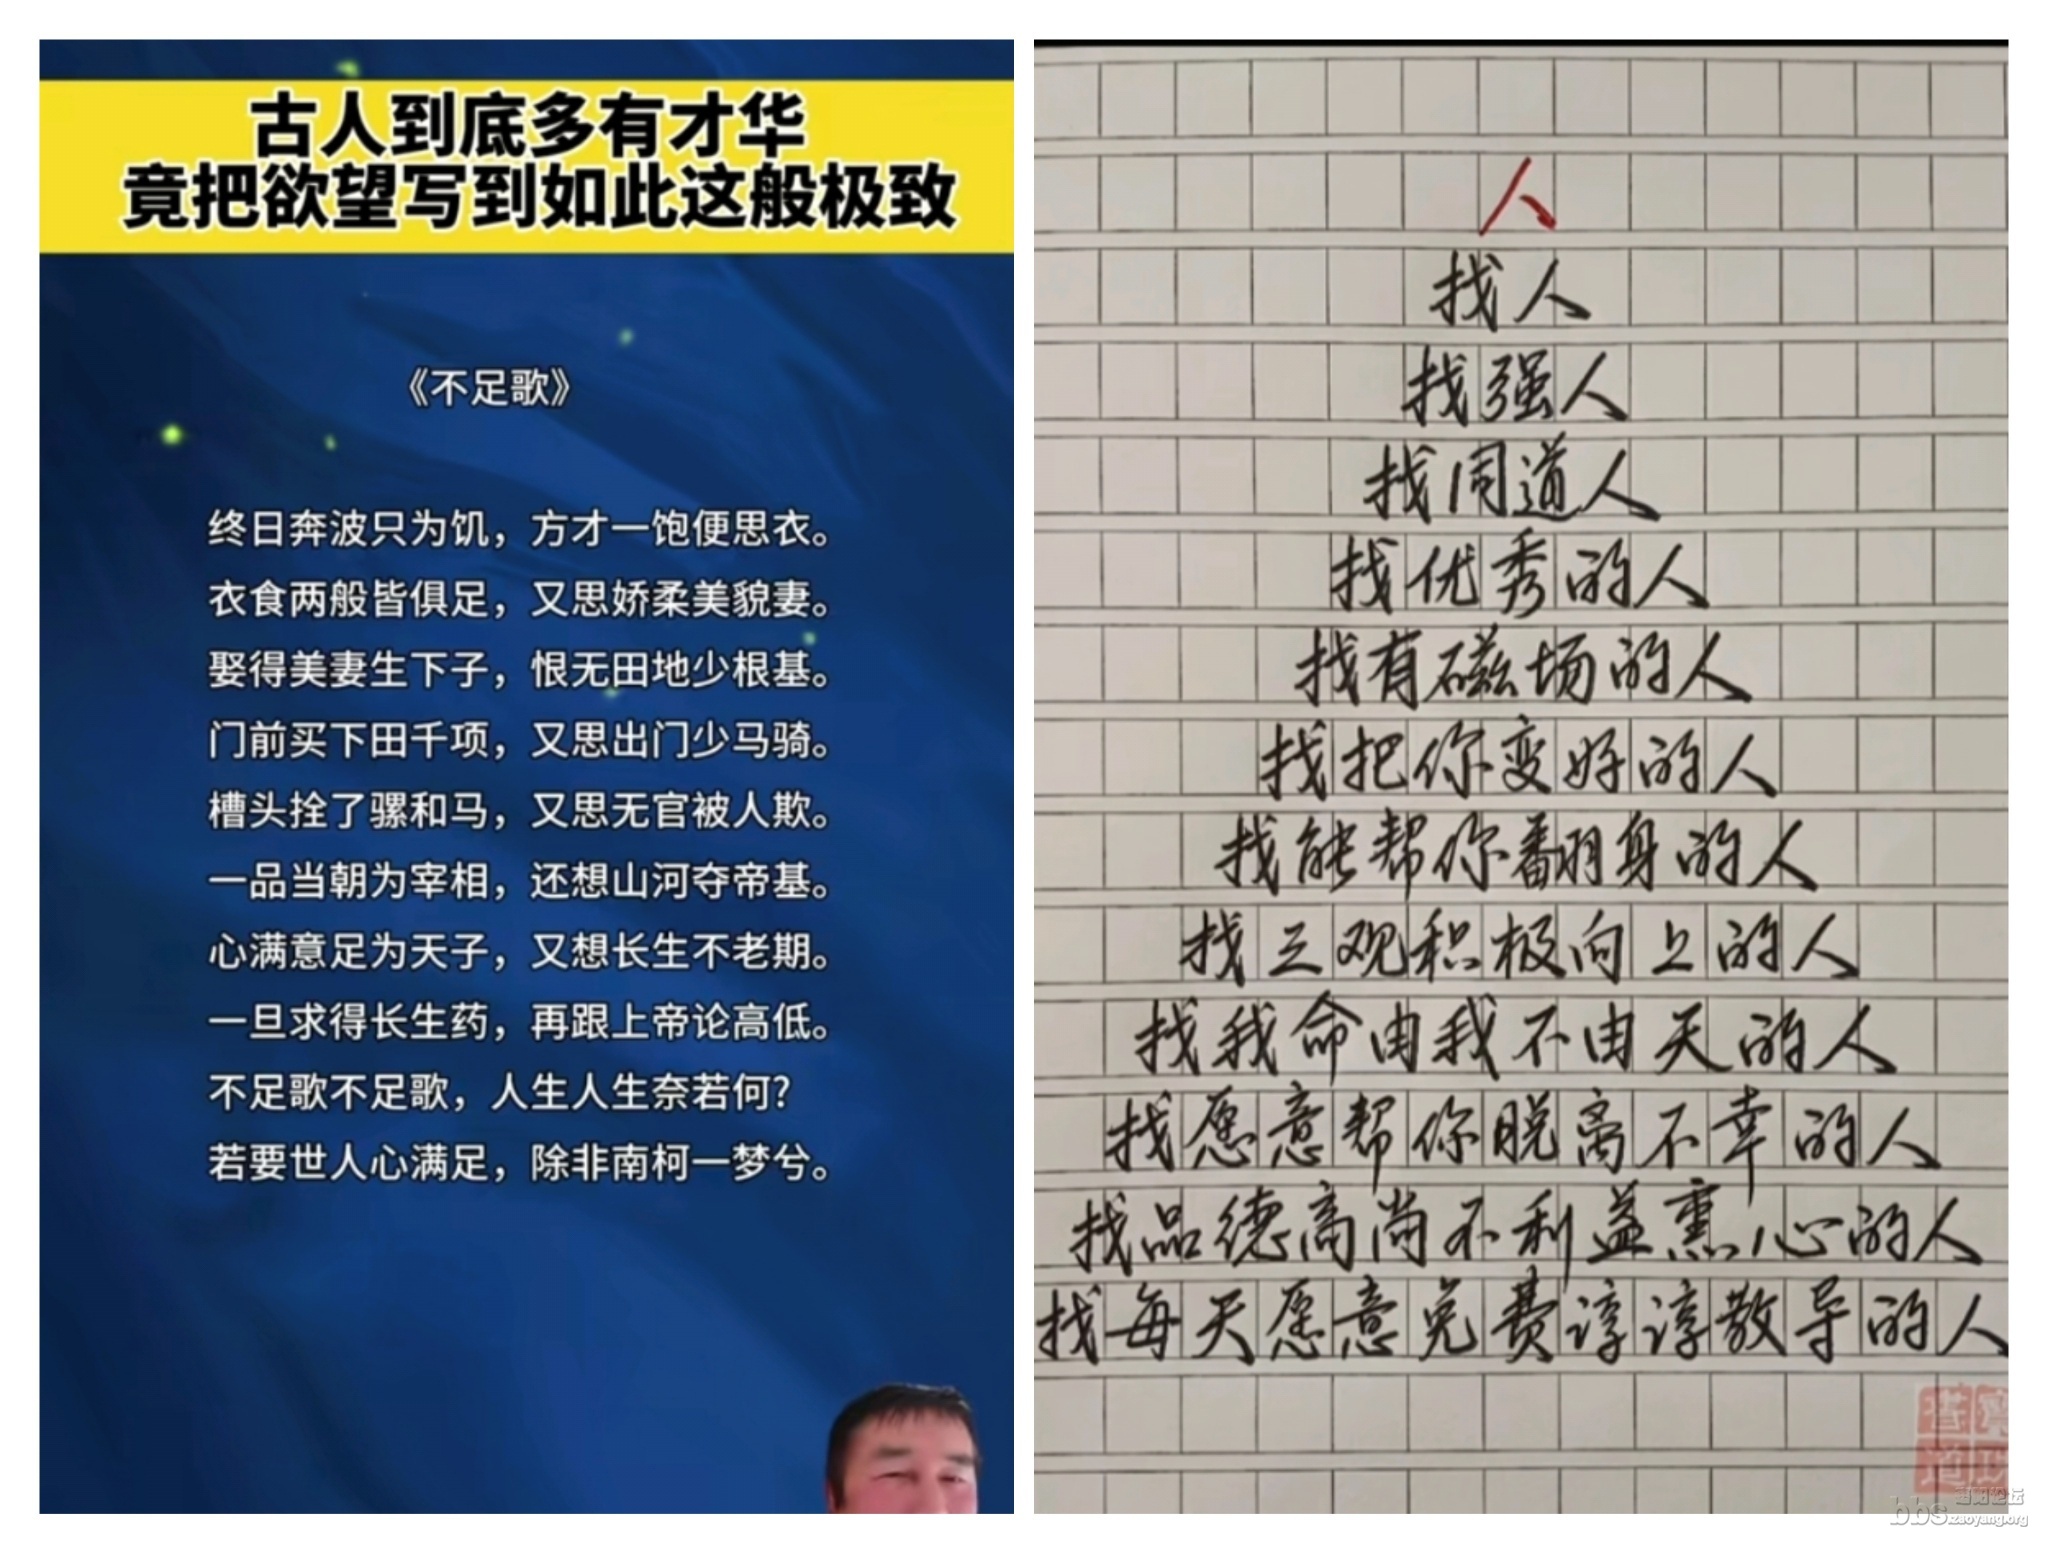 古人到底多有才华
竟把欲望写到如此这般极致
《不足歌》
终日奔波只为饥，方才一饱便思衣。
衣食两般皆俱足，又思娇柔美貌妻。
娶得美妻生下子，恨无田地少根基。
门前买下田千项，又思出门少马骑。
槽头拴了骡和马，又思无官被人欺。
一品当朝为宰相，还想山河夺帝基。
心满意足为天子，又想长生不老期。
一旦求得长生药，再跟上帝论高低。
不足歌不足歌，人生人生奈若何?
若要世人心满足，除非南柯一梦兮。
人
找人
找强人
找同道人
找优秀的人
找有磁场的人
找把你变好的人
找能帮你翻身的人
找三观积极向上的人
找我命由我不由天的人
找愿意帮你脱离不幸的人
找品德高尚不利益熏心的人
找每天愿意免费谆谆教导的人
bbs.zaoyang.org